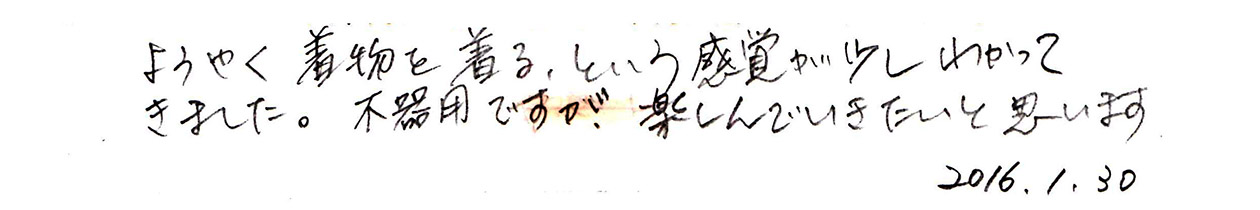 ようやく着物を着る、という感覚が少しわかって
きました。不器用ですが、楽しんでいきたいと思います
2016.1.30